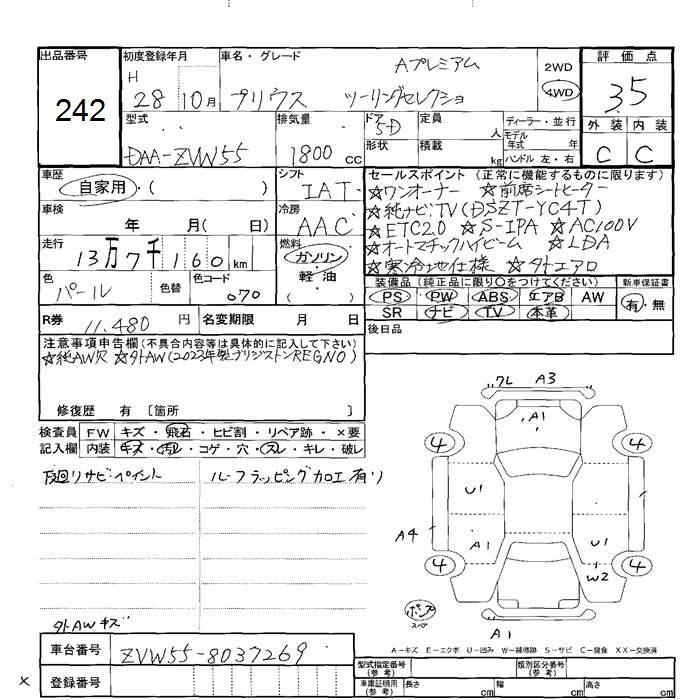 出品番号
242
初度登録年月
H 28 10月
車名・グレード
プリウス Aプレミアム ツーリングセレクショ
2WD
4WD
評価点
3.5
外装 内装
C C
型式
DAA-ZVW55
排気量
1800 cc
ドア 5D
形状
定員 人
積載 kg
ディーラー・並行
モデル年式 年
ハンドル 左・右
車歴
自家用・( )
シフト
IAT
セールスポイント(正常に機能するものに限ります)
☆ワンオーナー ☆前席シートヒーター
☆純ナビ:TV(DSZT-YC4T)
☆ETC2.0 ☆S-IPA ☆AC100V
☆オートマチックハイビーム ☆LDA
☆寒冷地仕様 ☆外エアロ
車検
年 月( 日)
冷房
AAC
走行
13万7千160km
燃料
ガソリン・
軽・油
( )
色
パール
色替
色コード
070
装備品(純正品に限り○をつけてください)
PS PW ABS エアB AW
SR ナビ TV 本革
新車保証書
有・無
R券 11,480 円
名変期限 月 日
後日品
注意事項申告欄(不具合内容等は具体的に記入して下さい)
☆純AW欠 ☆外AW(2023年製ブリジストンREGNO)
修復歴 有 〔箇所 〕
検査員記入欄
FW キズ・飛石・ヒビ割・リペア跡・×要
内装 キズ・汚レ・コゲ・穴・スレ・キレ・破レ
下廻りサビ・ペイント
ルーフラッピング加工有り
ワレ A3
A1
4 4
U1
A4
A1 U1
4 4
W2
ポンプ
スペア
A1
外AWキズ
A-キズ E-エクボ U-凹み W-補修跡 S-サビ C-腐食 XX-交換済
車台番号
ZVW55-8037269
× 登録番号
型式指定番号(参考)
類別区分番号(参考)
車庫証明用(参考)
長さ cm
幅 cm
高さ cm